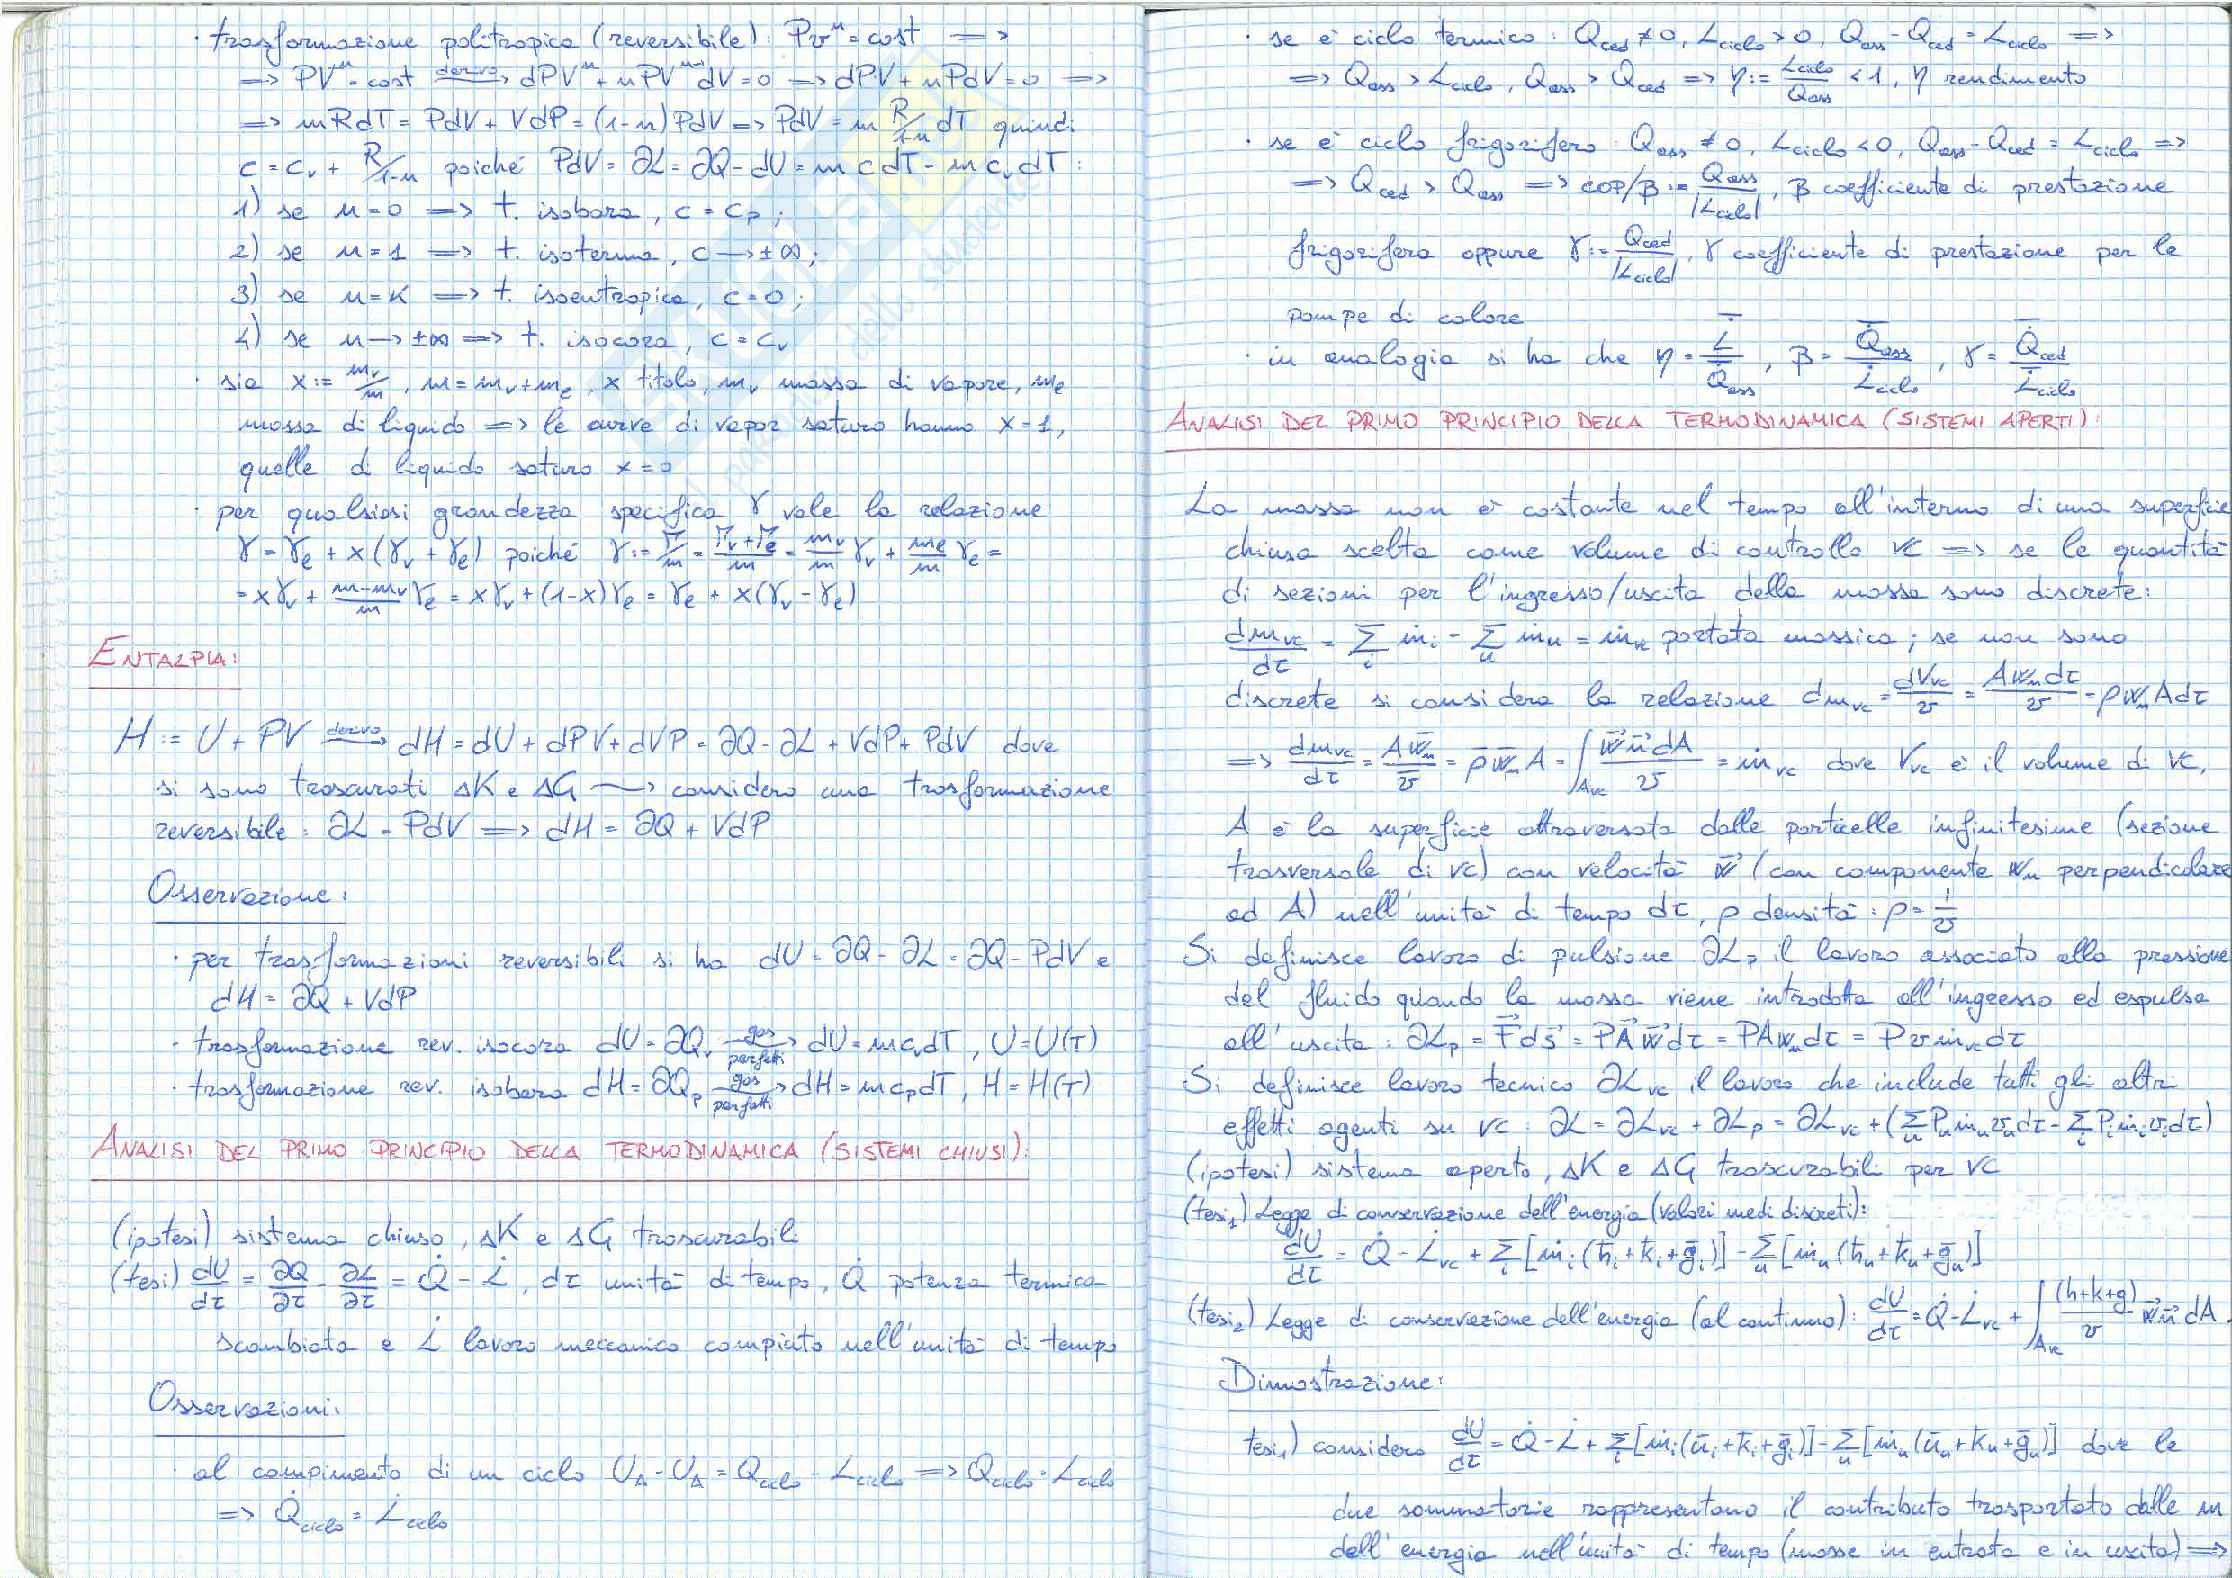 · trasformazione politropica (reversibile): Pvⁿ = cost =>
=> PVⁿ = cost derivo→ dPVⁿ + nPVⁿ⁻¹dV = 0 => dPV + nPdV = 0 =>
=> mRdT = PdV + VdP = (1-n)PdV => PdV = m R/1-n dT quindi
c = cᵥ + R/1-n poiché PdV = ∂L = ∂Q - dU = m c dT - m cᵥ dT :
1) se n = 0 => t. isobara, c = c_P ;
2) se n = 1 => t. isoterma, c → ±∞ ;
3) se n = K => t. isoentropica, c = 0 ;
4) se n → ±∞ => t. isocora, c = cᵥ
· sia x := mᵥ/m, m = mᵥ + m_e, x titolo, mᵥ massa di vapore, m_e
massa di liquido => le curve di vapor saturo hanno x = 1,
quelle di liquido saturo x = 0
· per qualsiasi grandezza specifica γ vale la relazione
γ = γ_e + x(γᵥ + γ_e) poiché γ := Γ/m = Γᵥ+Γ_e/m = mᵥ/m γᵥ + m_e/m γ_e =
= xγᵥ + m-mᵥ/m γ_e = xγᵥ + (1-x)γ_e = γ_e + x(γᵥ - γ_e)
ENTALPIA:
H := U + PV derivo→ dH = dU + dPV + dVP = ∂Q - ∂L + VdP + PdV dove
si sono trascurati ΔK e ΔG ⟿ considero una trasformazione
reversibile: ∂L = PdV => dH = ∂Q + VdP
Osservazione:
· per trasformazioni reversibili si ha dU = ∂Q - ∂L = ∂Q - PdV e
dH = ∂Q + VdP
· trasformazione rev. isocora dU = ∂Qᵥ gas perfetti→ dU = m cᵥ dT, U = U(T)
· trasformazione rev. isobara dH = ∂Q_P gas perfetti→ dH = m c_P dT, H = H(T)
ANALISI DEL PRIMO PRINCIPIO DELLA TERMODINAMICA (SISTEMI CHIUSI):
(ipotesi) sistema chiuso, ΔK e ΔG trascurabili
(tesi) dU/dτ = ∂Q/∂τ - ∂L/∂τ = Q̇ - L̇, dτ unità di tempo, Q̇ potenza termica
scambiata e L̇ lavoro meccanico compiuto nell'unità di tempo
Osservazioni:
· al compimento di un ciclo U_A - U_A = Q_ciclo - L_ciclo => Q_ciclo = L_ciclo
=> Q̇_ciclo = L̇_ciclo
· se è ciclo termico: Q_ced ≠ 0, L_ciclo > 0, Q_ass - Q_ced = L_ciclo =>
=> Q_ass > L_ciclo, Q_ass > Q_ced => η := L_ciclo/Q_ass < 1, η rendimento
· se è ciclo frigorifero: Q_ass ≠ 0, L_ciclo < 0, Q_ass - Q_ced = L_ciclo =>
=> Q_ced > Q_ass => COP/β := Q_ass/|L_ciclo|, β coefficiente di prestazione
frigorifera oppure γ := Q_ced/|L_ciclo|, γ coefficiente di prestazione per le
pompe di calore
· in analogia si ha che η = L̇/Q̇_ass, β = Q̇_ass/L̇_ciclo, γ = Q̇_ced/L̇_ciclo
ANALISI DEL PRIMO PRINCIPIO DELLA TERMODINAMICA (SISTEMI APERTI):
La massa non è costante nel tempo all'interno di una superficie
chiusa scelta come volume di controllo VC => se le quantità
di sezioni per l'ingresso/uscita della massa sono discrete:
dm_vc/dτ = Σ_i ṁ_i - Σ_u ṁ_u = ṁ_vc portata massica; se non sono
discrete si considera la relazione dm_vc = dV_vc/v = A w_n dτ/v = ρ w_n A dτ
=> dm_vc/dτ = A w̄_n/v̄ = ρ̄ w̄_n A = ∫_A_vc w⃗ n⃗ dA/v = ṁ_vc dove V_vc è il volume di VC,
A è la superficie attraversata dalle particelle infinitesime (sezione
trasversale di VC) con velocità w⃗ (con componente w_n perpendicolare
ad A) nell'unità di tempo dτ, ρ densità: ρ = 1/v
Si definisce lavoro di pulsione ∂L_P il lavoro associato alla pressione
del fluido quando la massa viene introdotta all'ingresso ed espulsa
all'uscita: ∂L_P = F⃗ ds⃗ = P A⃗ w⃗ dτ = P A w_n dτ = P v ṁ_vc dτ
Si definisce lavoro tecnico ∂L_vc il lavoro che include tutti gli altri
effetti agenti su VC: ∂L = ∂L_vc + ∂L_P = ∂L_vc + (Σ_u P_u ṁ_u v_u dτ - Σ_i P_i ṁ_i v_i dτ)
(ipotesi) sistema aperto, ΔK e ΔG trascurabili per VC
(tesi₁) Legge di conservazione dell'energia (valori medi discreti):
dU/dτ = Q̇ - L̇_vc + Σ_i [ṁ_i (h̄_i + k̄_i + ḡ_i)] - Σ_u [ṁ_u (h̄_u + k̄_u + ḡ_u)]
(tesi₂) Legge di conservazione dell'energia (al continuo): dU/dτ = Q̇ - L̇_vc + ∫_A_vc (h+k+g)/v w⃗ n⃗ dA.
Dimostrazione:
tesi₁) considero dU/dτ = Q̇ - L̇ + Σ_i [ṁ_i (ū_i + k̄_i + ḡ_i)] - Σ_u [ṁ_u (ū_u + k_u + ḡ_u)] dove le
due sommatorie rappresentano il contributo trasportato dalle m
dell'energia nell'unità di tempo (masse in entrata e in uscita) =>